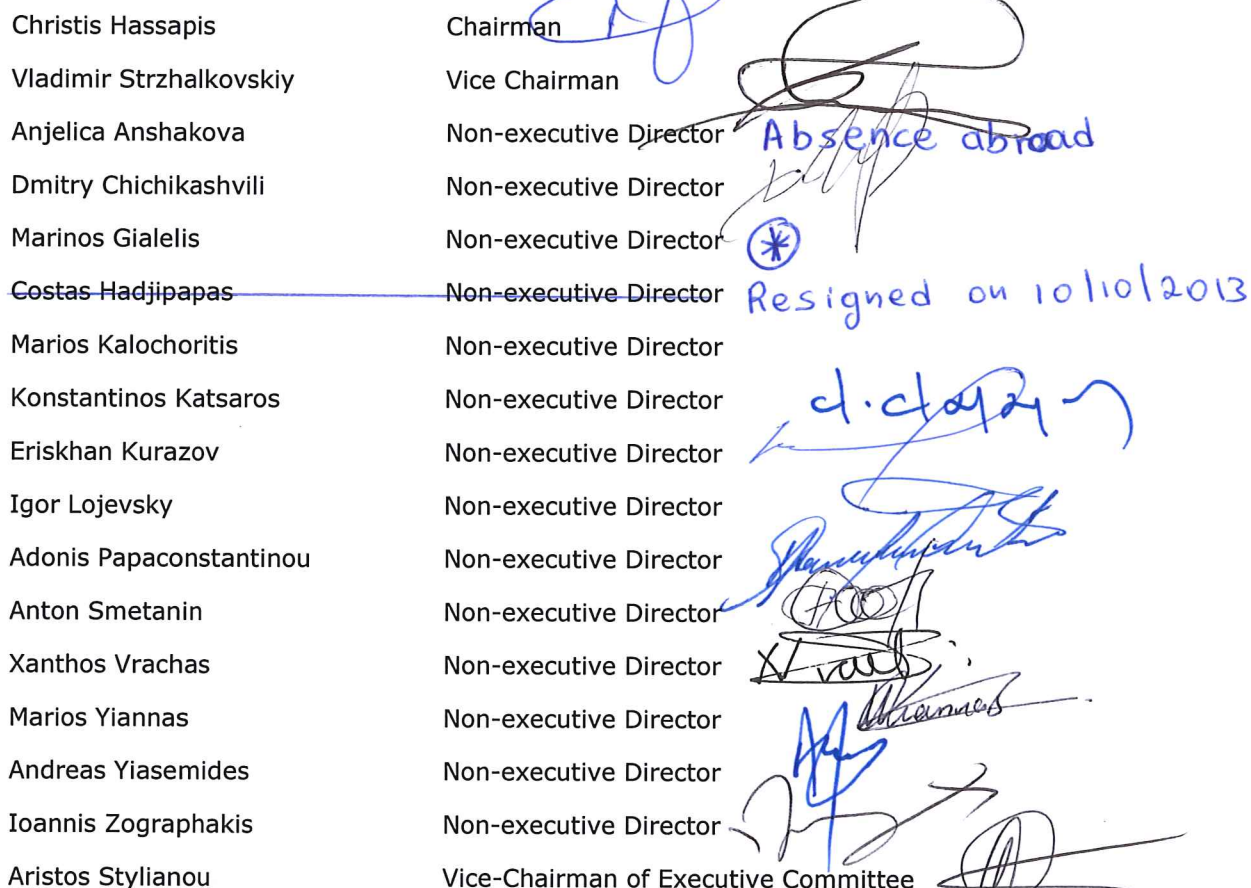 Christis Hassapis Chairman
Vladimir Strzhalkovskiy Vice Chairman
Anjelica Anshakova Non-executive Director Absence abroad
Dmitry Chichikashvili Non-executive Director
Marinos Gialelis Non-executive Director *
Costas Hadjipapas Non-executive Director Resigned on 10/10/2013
Marios Kalochoritis Non-executive Director
Konstantinos Katsaros Non-executive Director
Eriskhan Kurazov Non-executive Director
Igor Lojevsky Non-executive Director
Adonis Papaconstantinou Non-executive Director
Anton Smetanin Non-executive Director
Xanthos Vrachas Non-executive Director
Marios Yiannas Non-executive Director
Andreas Yiasemides Non-executive Director
Ioannis Zographakis Non-executive Director
Aristos Stylianou Vice-Chairman of Executive Committee